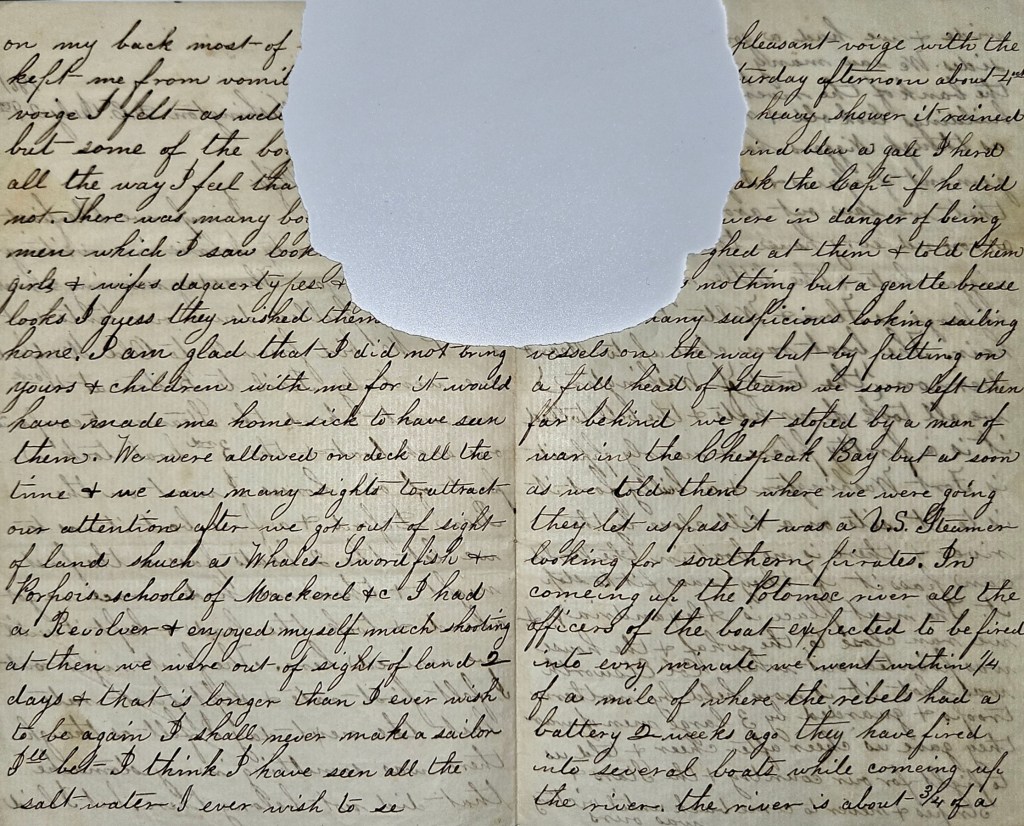 on my back most of
kept me from vomit
voige I felt as well
but some of the bo
all the way I feel tha
not. There was many bo
men which I saw look
girls & wifes daguertypes &
looks I guess they wished them
home. I am glad that I did not bring
yours & children with me for it would
have made me home-sick to have seen
them. We were allowed on deck all the
time & we saw many sights to attract
our attention after we got out of sight
of land shuch as Whales Swordfish &
Porpois schooles of Mackerel &c I had
a Revolver & enjoyed myself much shooting
at then we were out of sight of land 2
days & that is longer than I ever wish
to be again I shall never make a sailor
I'll bet I think I have seen all the
salt water I ever wish to se
pleasant voige with the
turday afternoon about 4
heavy shower it rained
wind blew a gale I herd
ask the Capt if he did
were in danger of being
ghed at them & told them
nothing but a gentle breese
many suspicious looking sailing
vessels on the way but by putting on
a full head of steam we soon left then
far behind we got stoped by a man of
war in the Chespeak Bay but as soon
as we told them where we were going
they let us pass it was a U.S. Steamer
looking for southern pirates. In
comeing up the Potomoc river all the
officers of the boat expected to be fired
into evry minute we went within 1/4
of a mile of where the rebels had a
battery 2 weeks ago they have fired
into several boats while comeing up
the river. the river is about 3/4 of a